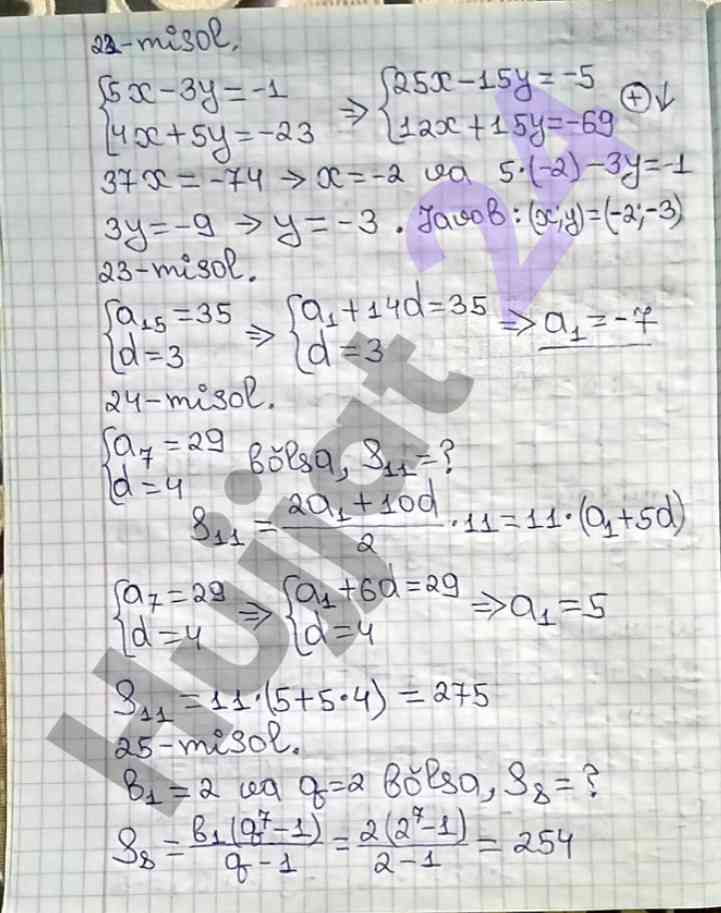 22-misol.
{5x-3y=-1 {4x+5y=-23 => {25x-15y=-5 {12x+15y=-69 (+)↓
37x=-74 → x=-2 va 5·(-2)-3y=-1
3y=-9 → y=-3. Javob: (x;y)=(-2;-3)
23-misol.
{a₁₅=35 {d=3 => {a₁+14d=35 {d=3 => a₁=-7
24-misol.
{a₇=29 {d=4 bŏlsa, S₁₁=?
S₁₁=(2a₁+10d)/2·11=11·(a₁+5d)
{a₇=29 {d=4 => {a₁+6d=29 {d=4 => a₁=5
S₁₁=11·(5+5·4)=275
25-misol.
b₁=2 va q=2 bŏlsa, S₈=?
S₈=b₁(q⁷-1)/(q-1)=2(2⁷-1)/(2-1)=254
Hujjat 24